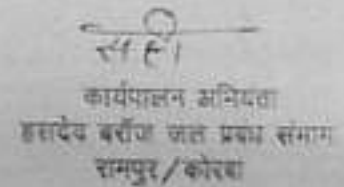 सही
कार्यपालन अभियंता
हसदेव बरॉज जल प्रबंध संभाग
रामपुर/कोरबा